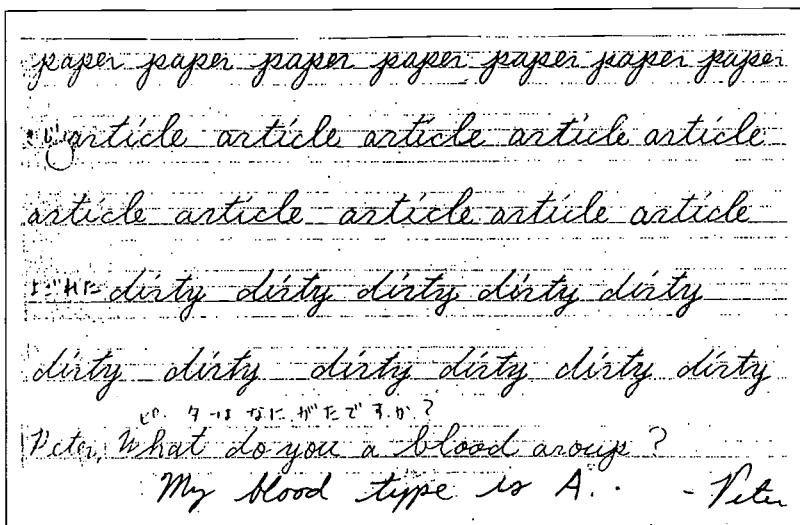 paper paper paper paper paper paper paper
きじ article article article article article
article article article article article
よごれた dirty dirty dirty dirty dirty
dirty dirty dirty dirty dirty dirty
ピーターは なにがたですか?
Peter, What do you a blood aroup?
My blood type is A. - Peter